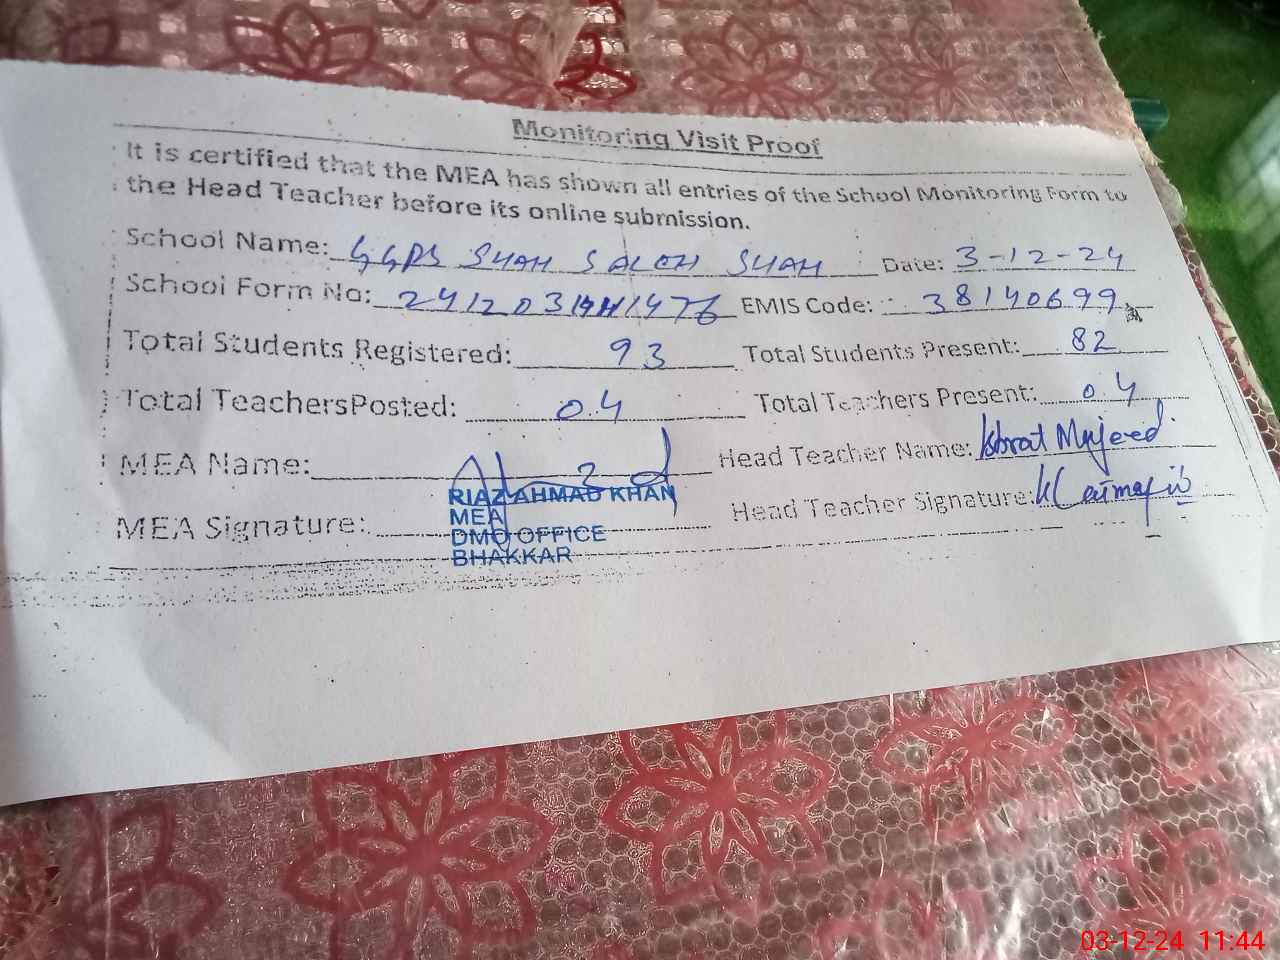 Monitoring Visit Proof
It is certified that the MEA has shown all entries of the School Monitoring Form to
the Head Teacher before its online submission.
School Name: GGPS SHAH SALEH SHAH Date: 3-12-24
School Form No: EMIS Code: 38140699
Total Students Registered: 93 Total Students Present: 82
Total TeachersPosted: 04 Total Teachers Present: 04
MEA Name: Head Teacher Name: Majeed
RIAZ AHMAD KHAN
MEA
MEA Signature: Head Teacher Signature:
DMO OFFICE
BHAKKAR
03-12-24 11:44